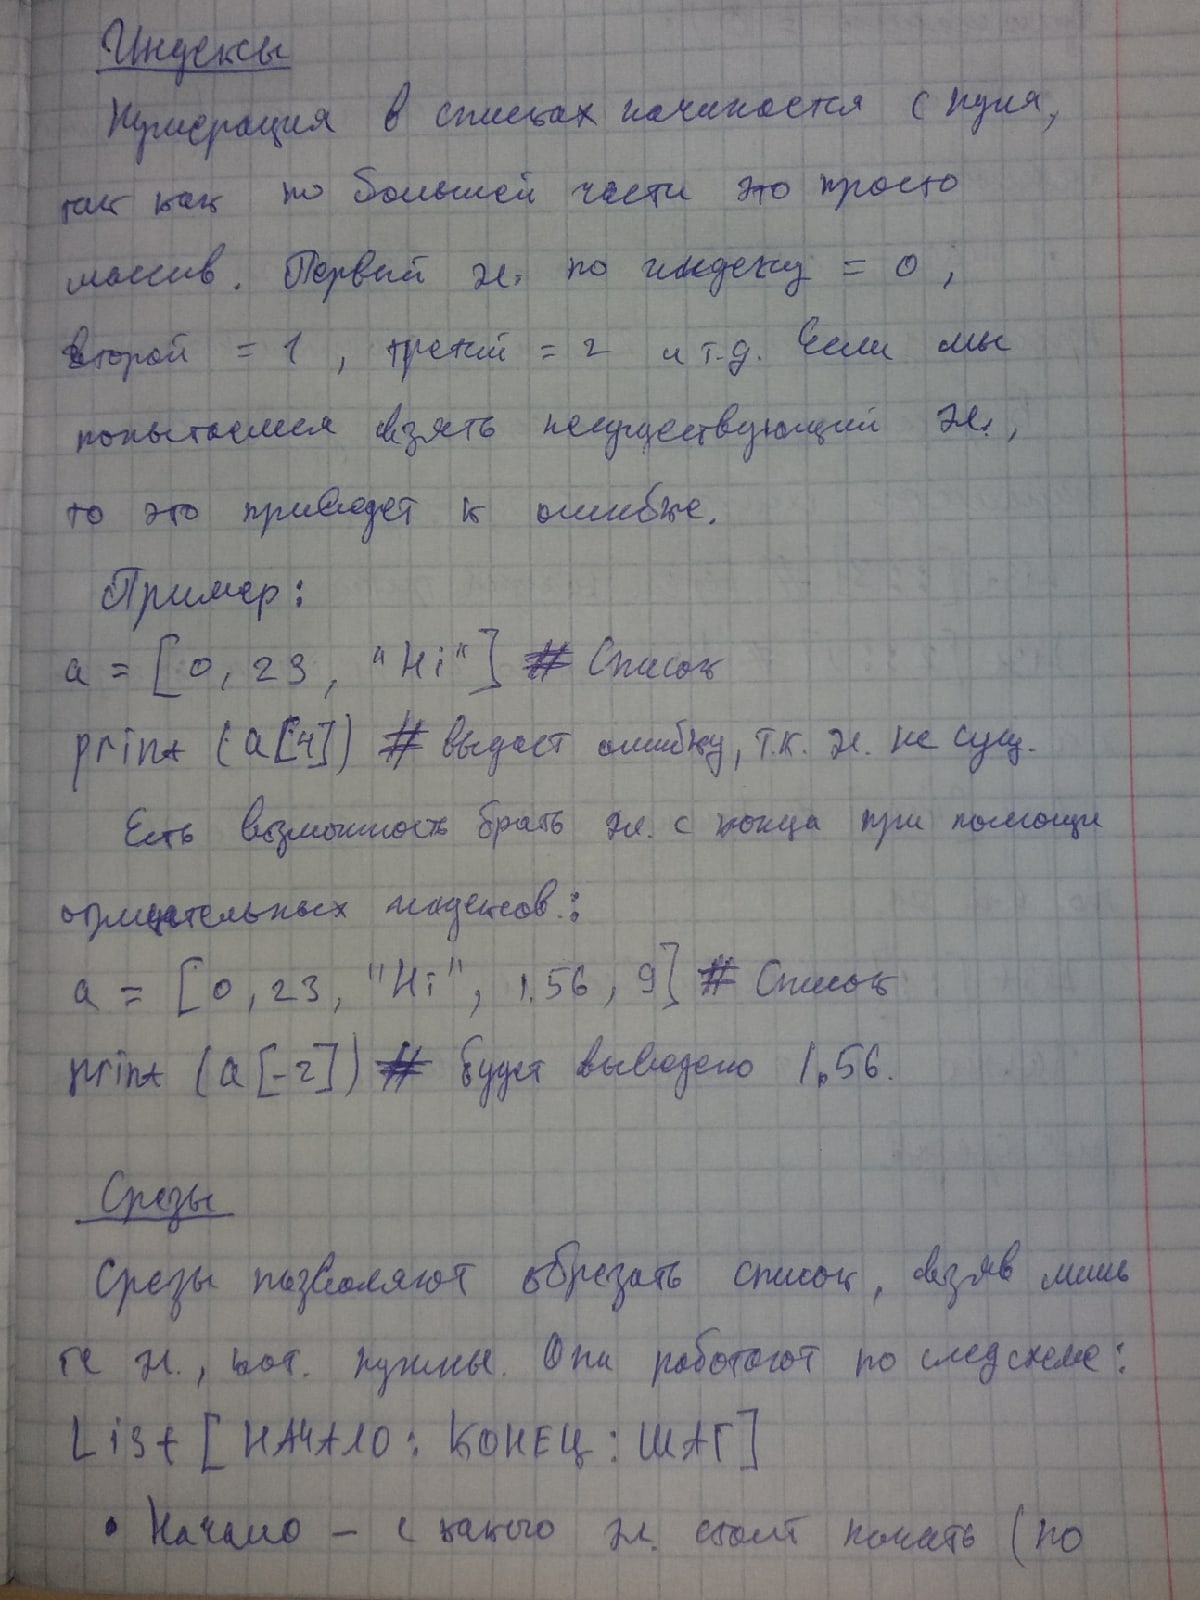 Индексы
Нумерация в списках начинается с нуля,
так как по большей части это просто
массив. Первый эл. по индексу = 0,
второй = 1, третий = 2 и т.д. Если мы
попытаемся взять несуществующий эл.,
то это приведет к ошибке.
Пример:
a = [0, 23, "Hi"] # Список
print (a[4]) # выдаст ошибку, т.к. эл. не сущ.
Есть возможность брать эл. с конца при помощи
отрицательных индексов.:
a = [0, 23, "Hi", 1.56, 9] # Список
print (a[-2]) # будет выведено 1.56.
Срезы
Срезы позволяют обрезать список, взяв лишь
те эл., кот. нужны. Они работают по след схеме:
List [НАЧАЛО : КОНЕЦ : ШАГ]
• Начало – с какого эл. стоит начать (по